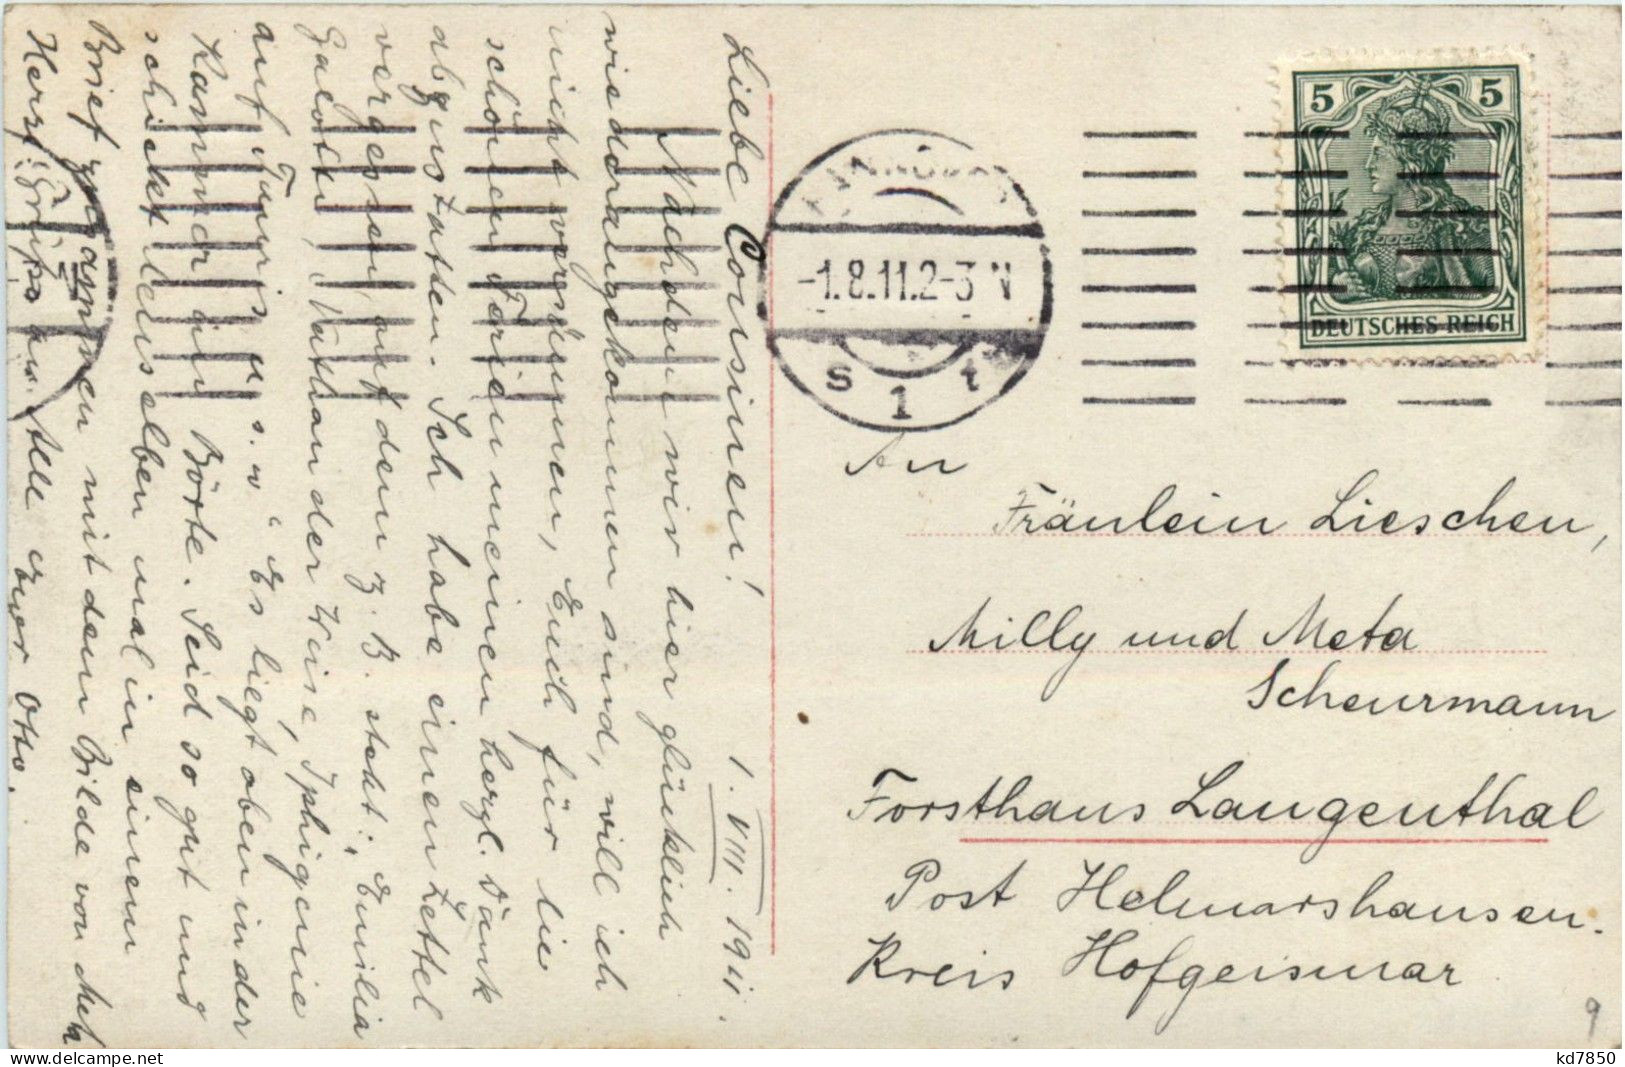 1. VIII. 1911.
Liebe Cousinen!
Nachdem wir hier glücklich
wieder angekommen sind, will ich
nicht versäumen, Euch für die
schönen Ferien meinen herzl. Dank
abzustatten. Ich habe einen Zettel
vergessen auf dem z. B. steht: „Emilia
Galotti, Nathan der Weise, Iphigenie
auf Tauris u. s. w." Es liegt oben in der
Kammer am Börte. Seid so gut und
schickt denselben mal in einem
Brief zusammen mit dem Bilde von
Herzl. Grüße an Alle Euer Otto.
5 5
DEUTSCHES REICH
HANNOVER
-1.8.11.2-3 N
s 1 t
An
Fräulein Lieschen,
Milly und Meta
Scheurmann
Forsthaus Langenthal
Post Helmarshausen.
Kreis Hofgeismar
9
kd7850